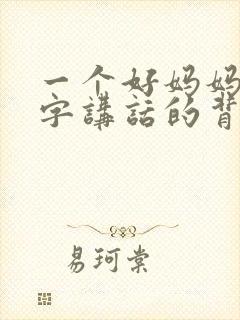 一个好妈妈
字講話的背
易珂棠